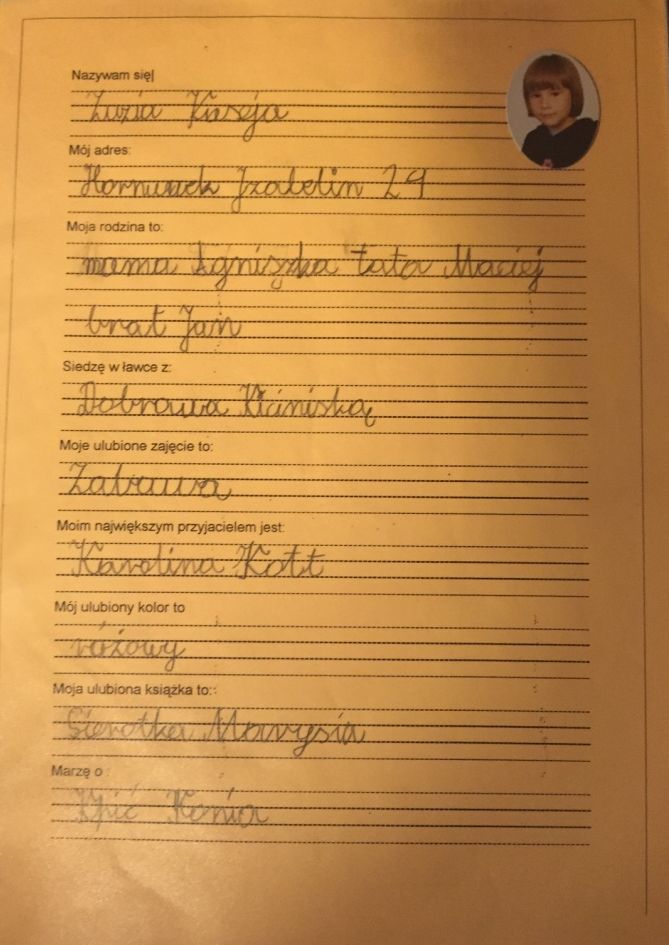 Nazywam się
Zuzia Kaseja
Mój adres:
Hornówek Izabelin 29
Moja rodzina to:
mama Agniszka tata Maciej
brat Jan
Siedzę w ławce z:
Dobrawa Kiciniską
Moje ulubione zajęcie to:
Zabawa
Moim największym przyjacielem jest:
Karolina Kott
Mój ulubiony kolor to
różowy
Moja ulubiona książka to:
Sierotka Marysia
Marzę o
Konia